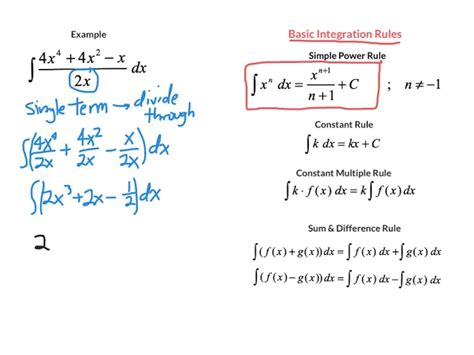 Example
∫ (4x⁴ + 4x² − x)/(2x) dx
single term → divide
through
∫(4x⁴/2x + 4x²/2x − x/2x) dx
∫(2x³ + 2x − 1/2) dx
2
Basic Integration Rules
Simple Power Rule
∫xⁿ dx = xⁿ⁺¹/(n+1) + C ; n ≠ −1
Constant Rule
∫k dx = kx + C
Constant Multiple Rule
∫k · f(x) dx = k∫f(x) dx
Sum & Difference Rule
∫(f(x) + g(x)) dx = ∫f(x) dx + ∫g(x) dx
∫(f(x) − g(x)) dx = ∫f(x) dx − ∫g(x) dx